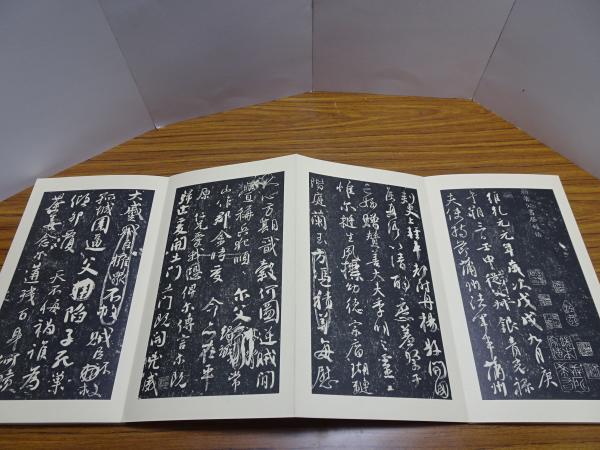 維乾元元年歲次戊戌九月庚
午朔三日壬申第十三叔銀青光祿
夫使持節蒲州諸軍事蒲州
刺史上輕車都尉丹楊縣開國
侯真卿以清酌庶羞祭于
亡姪贈贊善大夫季明之靈曰
惟爾挺生夙標幼德宗廟瑚璉
階庭蘭玉方憑積善每慰
人心方期戩穀何圖逆賊閒
釁稱兵犯順爾父竭誠常
山作郡余時受命亦在平
原仁兄愛我俾爾傳言爾既
歸止爰開土門土門既開兇威
大蹙賊臣擁眾不救賊臣不救
孤城圍逼父陷子死巢
傾卵覆天不悔禍誰為
荼毒念爾遘殘百身何贖